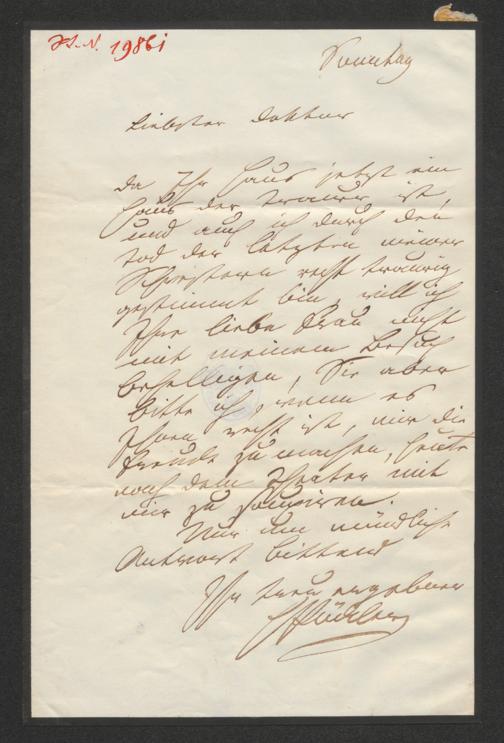 J.N. 19861
Sonntag
Liebster Doktor
Da Ihr Haus jetzt ein
Haus der Trauer ist,
und auch ich durch den
Tod der letzten meiner
Schwestern recht traurig
gestimmt bin, will ich
Ihre liebe Frau nicht
mit meinem Besuch
behelligen, Sie aber
bitte ich, wenn es
Ihnen recht ist, mir die
Freude zu machen, heute
nach dem Theater mit
mir zu soupiren.
Nur um mündliche
Antwort bittend
Ihr treu ergebener